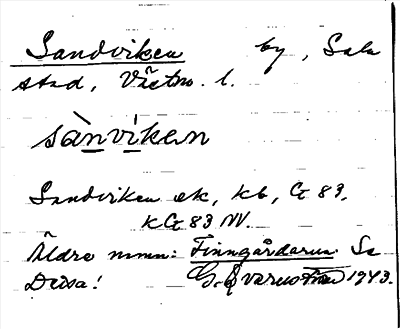 Sandviken by, Sala
stad, Västm. l.
sànviken
Sandviken ek, kb, Gt 83,
kGt 83 NV.
Äldre namn: Finngårdarna Se
Dessa!
1943.